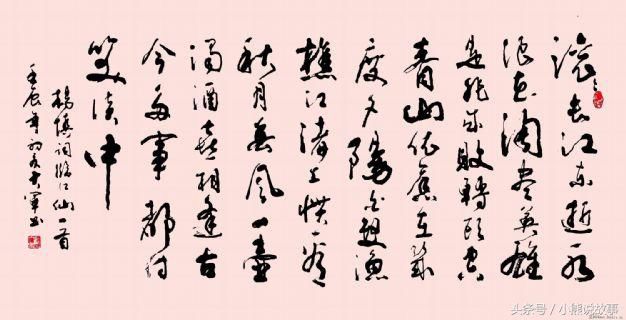 滚〻长江东逝水
浪花淘尽英雄
是非成败转头空
青山依旧在几
度夕陽红白发渔
樵江渚上惯看
秋月春风一壶
浊酒喜相逢古
今多事都付
笑谈中
杨慎词临江仙一首
壬辰年初夏大军书
头条号/小熊说故事